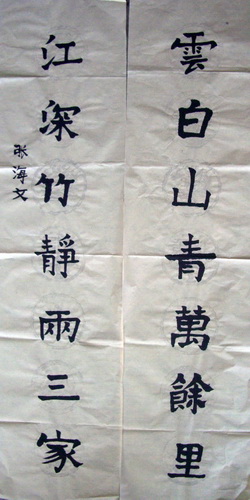 雲白山青萬餘里
江深竹靜兩三家
張海文